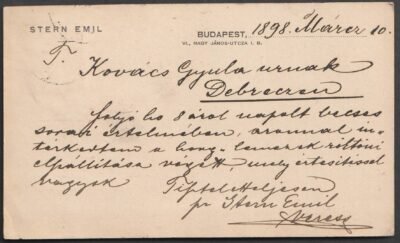 STERN EMIL
BUDAPEST, 1898. Márcz 10.
VI., NAGY JÁNOS-UTCZA I. B.
T. Kovács Gyula urnak
Debreczen
folyó hó 8 áról napolt becses
sorai értelmében, azonnal in-
tézkedtem a lemezek rögtöni
elpállitása végett, mely értesitéssel
vagyok
Tisztelettel
pr Stern Emil